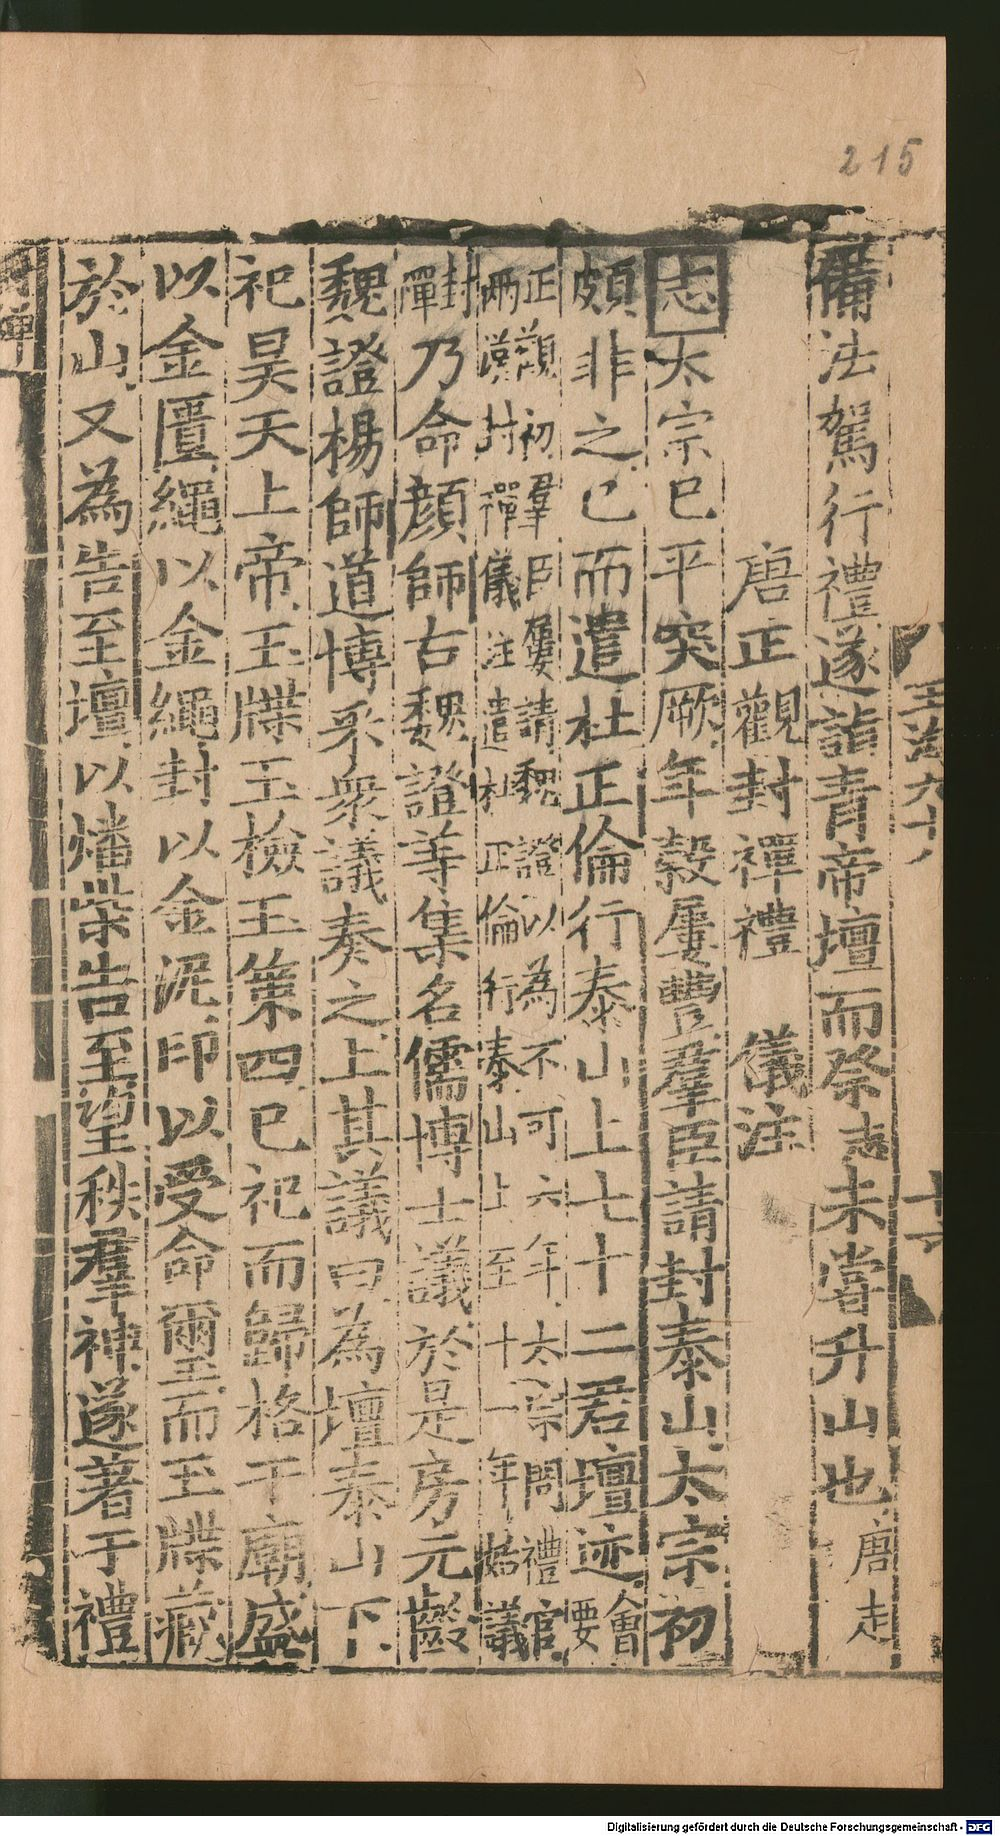 215
玉海六十
備法駕行禮遂詣青帝壇而祭志未嘗升山也唐志
唐正觀封禪禮 儀注
志太宗巳平突厥年穀屢豐羣臣請封泰山太宗初
頗非之巳而遣杜正倫行泰山上七十二君壇迹會要
正觀初羣臣屢請魏證以為不可六年太宗問禮官
兩漢封禪儀注遣杜正倫行泰山上至十一年始議
封禪乃命顏師古魏證等集名儒博士議於是房元齡
魏證楊師道博采衆議奏之上其議曰為壇泰山下
祀昊天上帝玉牒玉檢玉策四巳祀而歸格于廟盛
以金匱繩以金繩封以金泥印以受命爾玉而玉牒藏
於山又為告至壇以燔柴告至望秩羣神遂著于禮
Digitalisierung gefördert durch die Deutsche Forschungsgemeinschaft - DFG